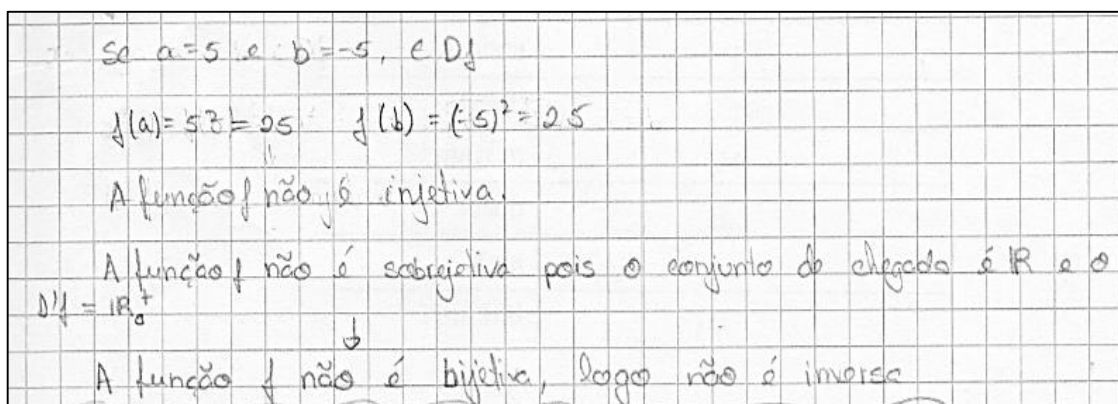 Se a=5 e b=-5, ∈ Df
f(a)= 5²= 25 f(b) = (-5)² = 25
A função f não é injetiva.
A função f não é sobrejetiva pois o conjunto de chegada é IR e o
D'f = IR₀⁺
↓
A função f não é bijetiva, logo não é inversa